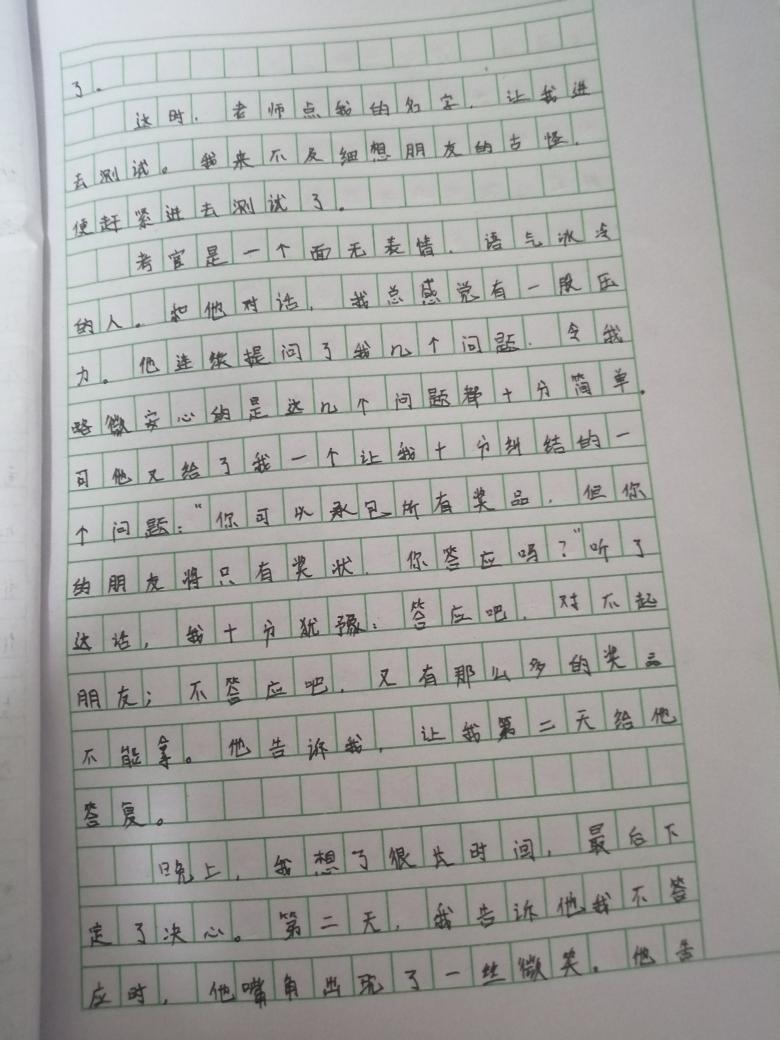 了。
这时，老师点我的名字，让我进
去测试。我来不及细想朋友的古怪，
便赶紧进去测试了。
考官是一个面无表情，语气冰冷
的人。和他对话，我总感觉有一股压
力。他连续提问了我几个问题，令我
略微安心的是这几个问题都十分简单。
可他又给了我一个让我十分纠结的一
个问题：“你可以承包所有奖品，但你
的朋友将只有奖状，你答应吗？”听了
这话，我十分犹豫：答应吧，对不起
朋友；不答应吧，又有那么多的奖品
不能拿。他告诉我，让我第二天给他
答复。
晚上，我想了很长时间，最后下
定了决心。第二天，我告诉他我不答
应时，他嘴角出现了一丝微笑。他告